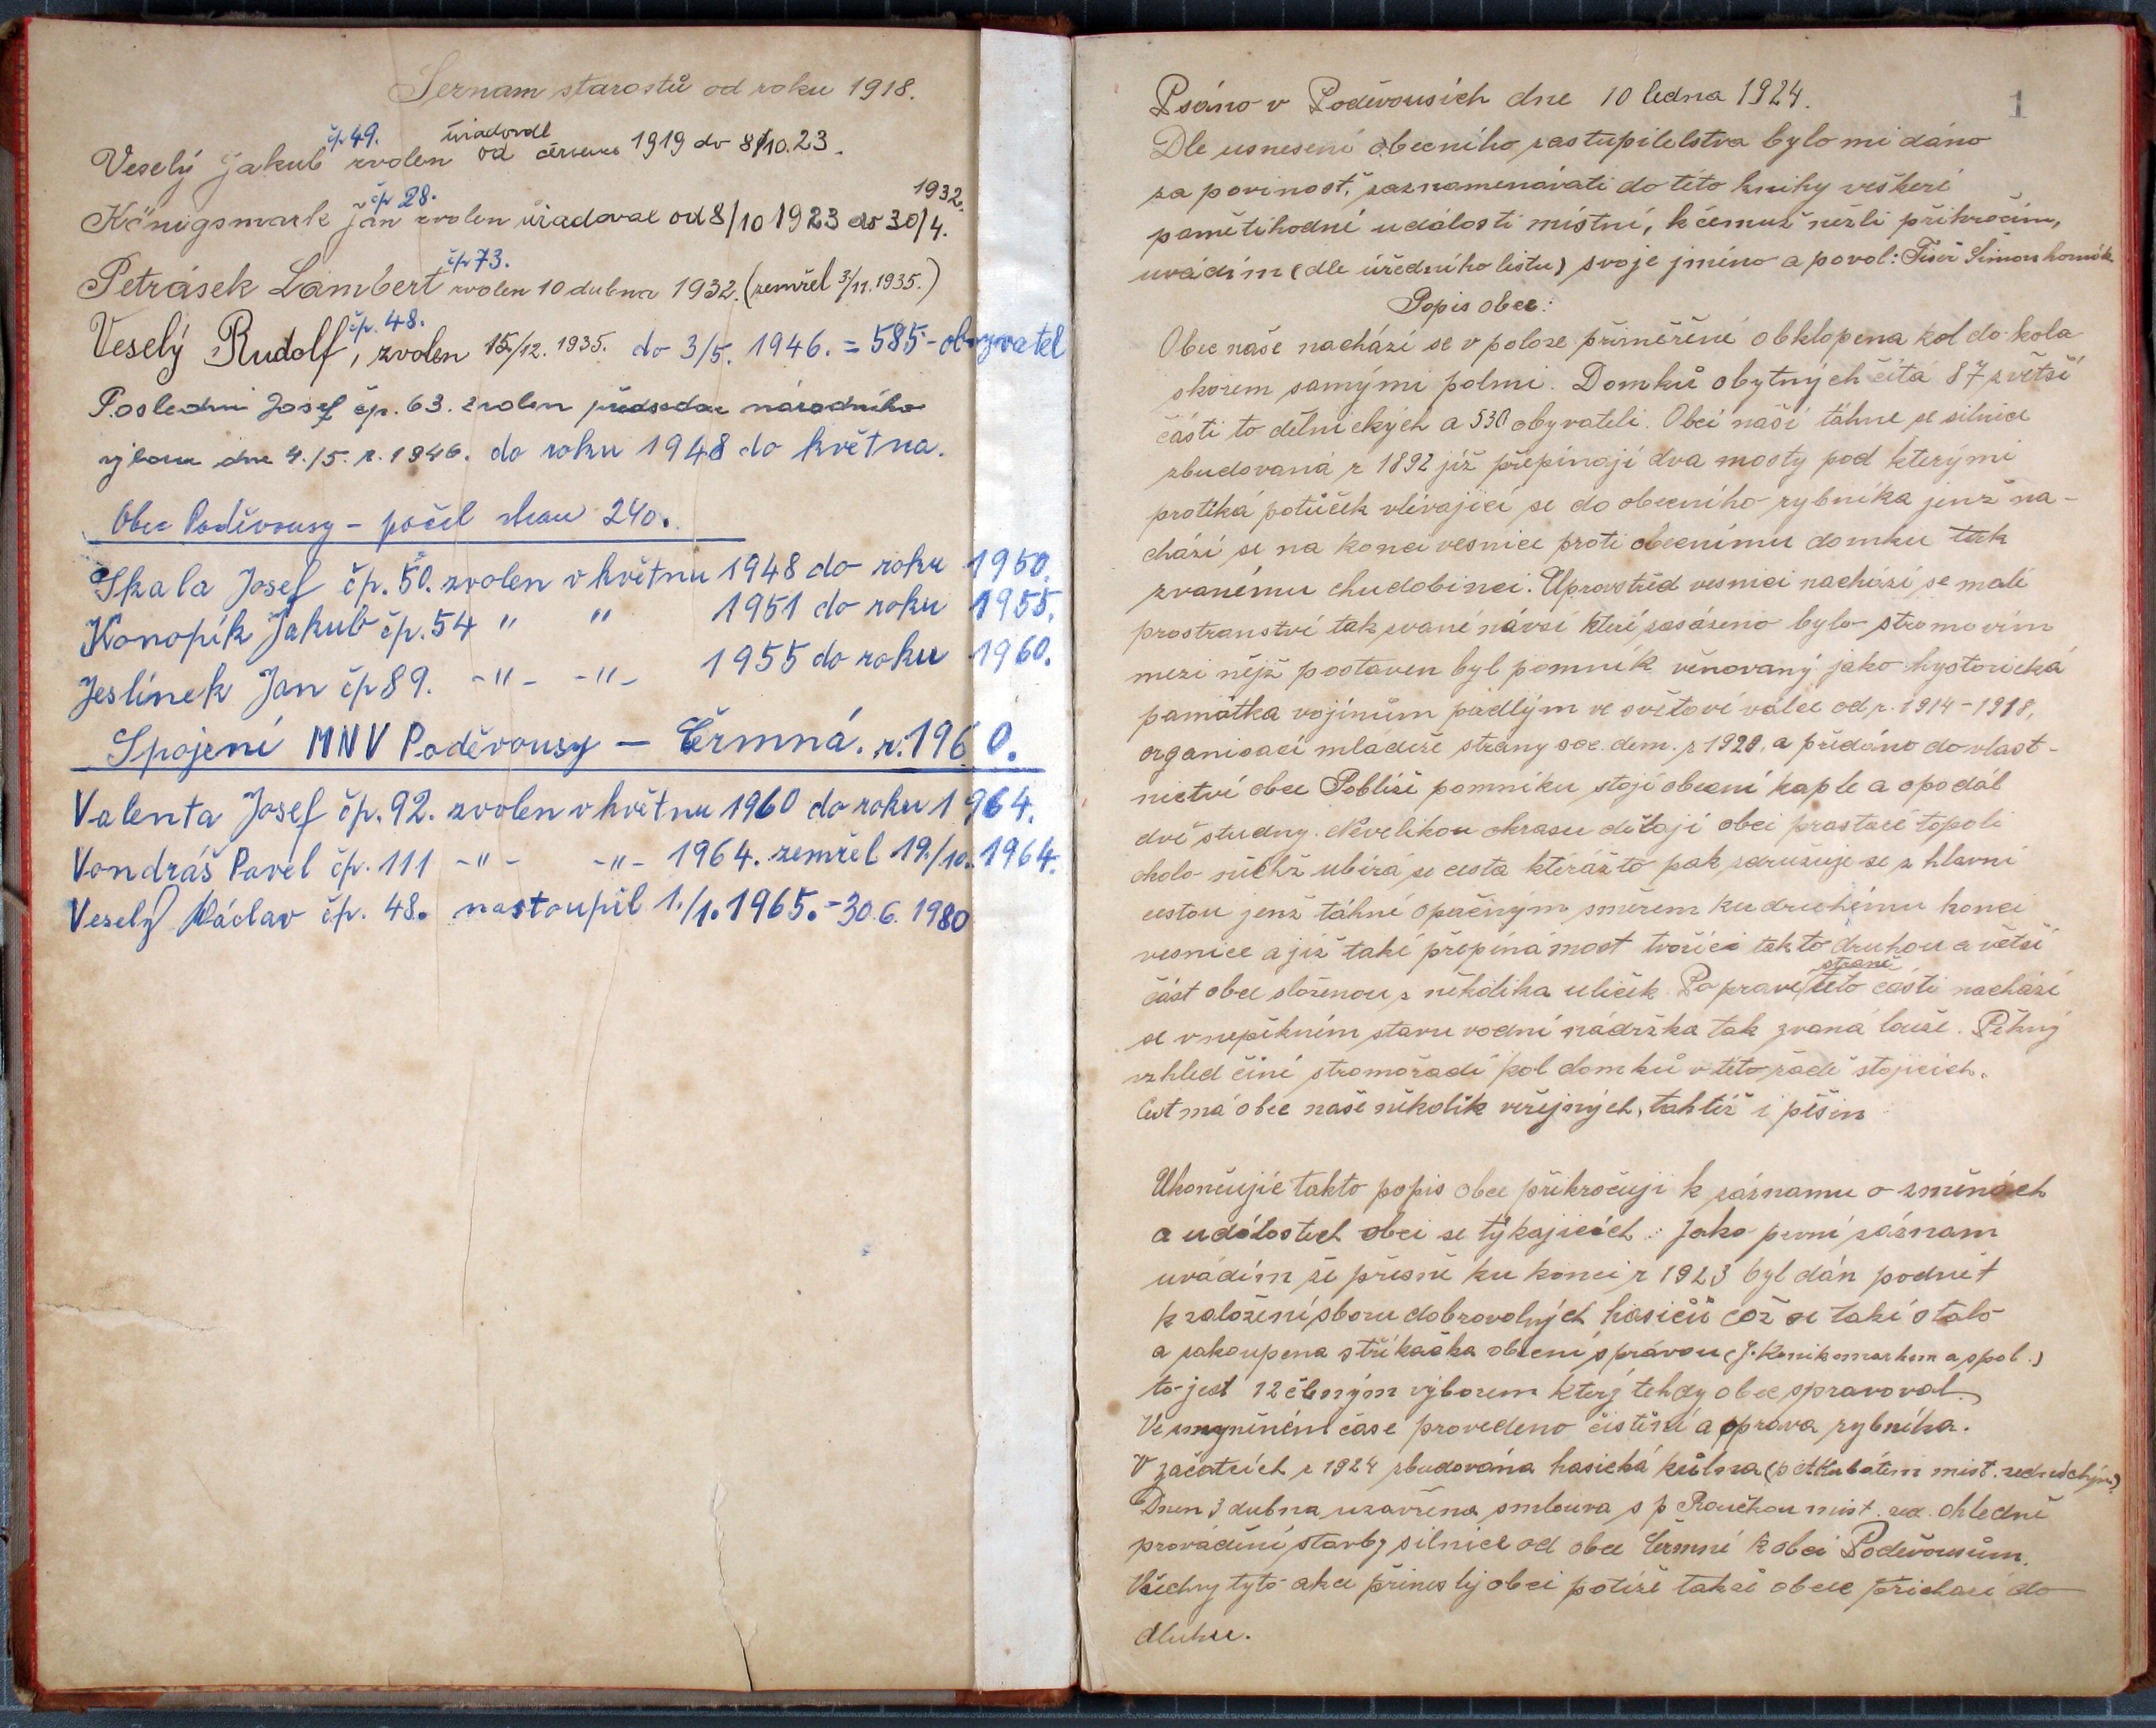 Seznam starostů od roku 1918.
čp 49. úřadoval
Veselý Jakub zvolen od červen 1919 do 8/10.23.
čp 28. 1932.
Königsmark Jan zvolen úřadoval od 8/10 1923 do 30/4.
čp 73.
Petrásek Lambert zvolen 10 dubna 1932. (zemřel 3/11. 1935.)
čp. 48.
Veselý Rudolf, zvolen 15/12. 1935. do 3/5. 1946. = 585 - obyvatel
Poslední Josef čp. 63. zvolen předsedou národního
výboru dne 4./5. r. 1946. do roku 1948 do května.
Obec Poděvousy - počet stavu 240.
Skala Josef čp. 50. zvolen v květnu 1948 do roku 1950.
Konopík Jakub čp. 54 " " 1951 do roku 1955.
Jeslínek Jan čp 89. -"- -"- 1955 do roku 1960.
Spojení MNV Poděvousy - Čermná. r. 1960.
Valenta Josef čp. 92. zvolen v květnu 1960 do roku 1964.
Vondráš Pavel čp. 111 -"- -"- 1964. zemřel 19./10. 1964.
Veselý Václav čp. 48. nastoupil 1./1. 1965. - 30.6. 1980
1
Psáno v Poděvousích dne 10 ledna 1924.
Dle usnesení obecního zastupitelstva bylo mi dáno
za povinost, zaznamenávati do této knihy veškeré
pamětihodné události místní, k čemuž nežli přikročím,
uvádím (dle úředního listu) svoje jméno a povol: Tišer Šimon horník
Popis obce:
Obec naše nachází se v poloze přiměřené obklopena kol do kola
skorem samými polmi. Domků obytných čítá 87 z větší
části to dělnických a 530 obyvateli. Obcí naší táhne se silnice
zbudovaná r 1892 již přepínají dva mosty pod kterými
protéká potůček vlévající se do obecního rybníka jenž na-
chází se na konci vesnice proti obecnímu domku tak
zvanému chudobinci. Uprostřed vesnici nachází se malé
prostranství tak zvané návsí které zasázeno bylo stromovím
mezi nějž postaven byl pomník věnovaný jako hystorická
památka vojínům padlým ve světové válce od r. 1914-1918,
organisací mládeže strany soc. dem. r 1920. a předáno do vlast-
nictví obce Poblíže pomníku stojí obecní kaple a opodál
dvě studny. Nevelikou okrasu dělají obci prastaré topoli
okolo nichž ubírá se cesta kterážto pak sdružuje se z hlavní
cestou jenž táhne opačným směrem ku druhému konci
vesnice a již také přepíná most tvořící takto druhou a větší
straně
část obce složenou z několika uliček. Po pravé této části nachází
se v nepěkném stavu vodní nádržka tak zvaná louže. Pěkný
vzhled činí stromořadí kol domků v této řadě stojících.
Cest má obec naše několik veřejných, taktéž i pěšin
Ukončujíc takto popis obce přikročuji k záznamu o změnách
a událostech obci se týkajících: Jako první záznam
uvádím že přesně ku konci r 1923 byl dán podnět
k založení sboru dobrovolných hasičů což se také stalo
a zakoupena stříkačka obecní správou (J. Keniksmarkem a spol.)
to jest 12 členým výborem který tehdy obec spravoval.
Ve smyněném čase provedeno čistění a oprava rybníka.
V začátcích r 1924 zbudována hasická kůlna (p. A. Kubátem míst. zednickým)
Dnem 3 dubna uzavřena smlouva s p Roučkou mist. zed. ohledně
provádění stavby silnice od obce Čermné k obci Poděvousům.
Všechny tyto akce přinesly obci potíže takže obec přichází do
dluhu.